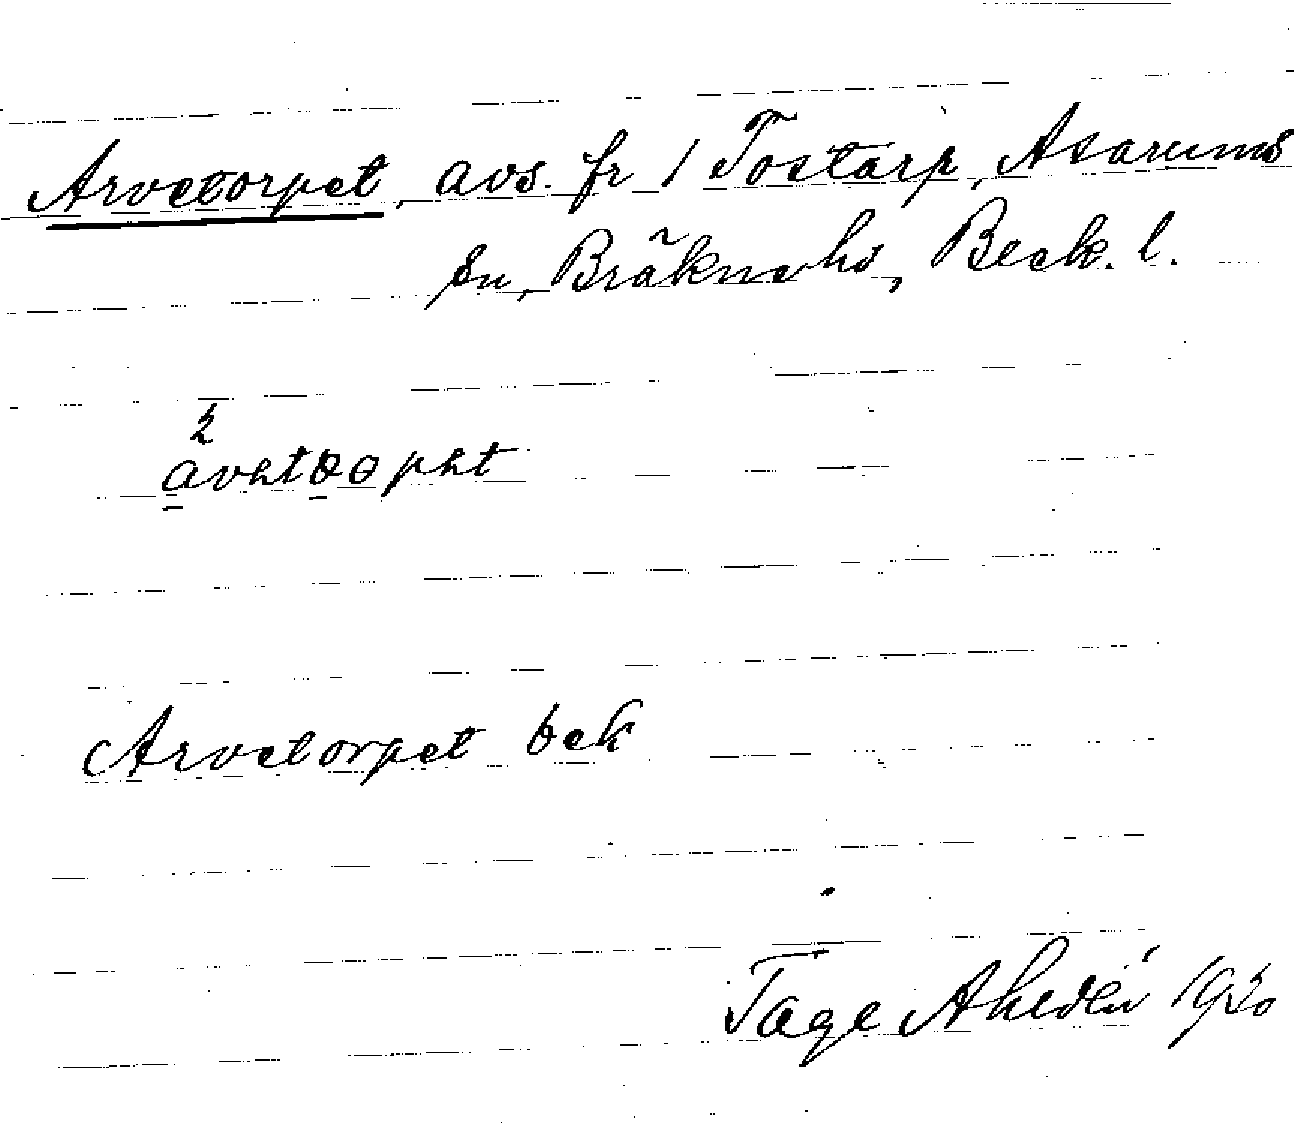 Arvetorpet, avs. fr 1 Tostarp, Asarums
sn, Bräkne hd, Bleck. l.
2
Arvetorpet bek
Tage Ahldén 1920